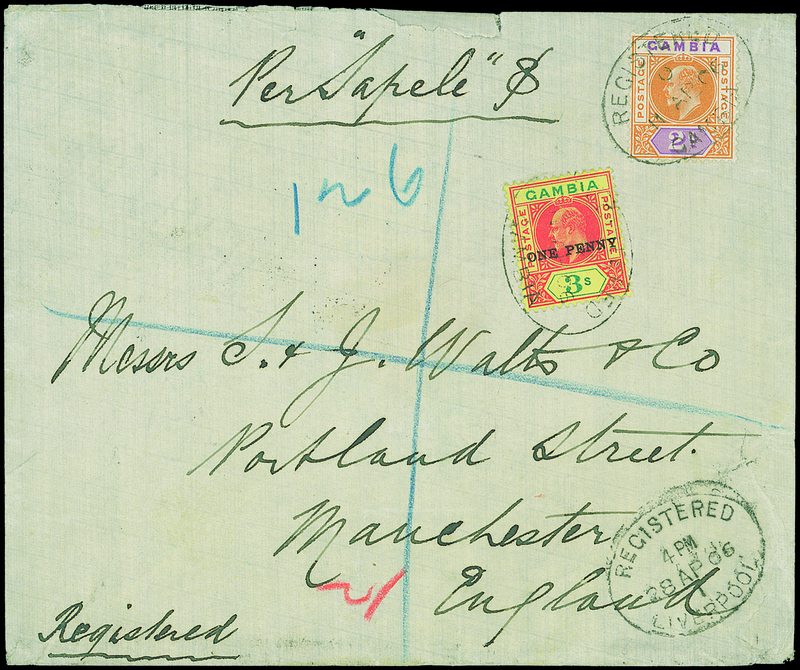 Per "Sapele"
REGISTERED
GAMBIA
POSTAGE
POSTAGE
2
126
GAMBIA
POSTAGE
POSTAGE
ONE PENNY
3s
Messrs S. & J. Watts & Co
Portland Street.
Manchester
England
Registered
REGISTERED
4 PM
28 AP 06
LIVERPOOL